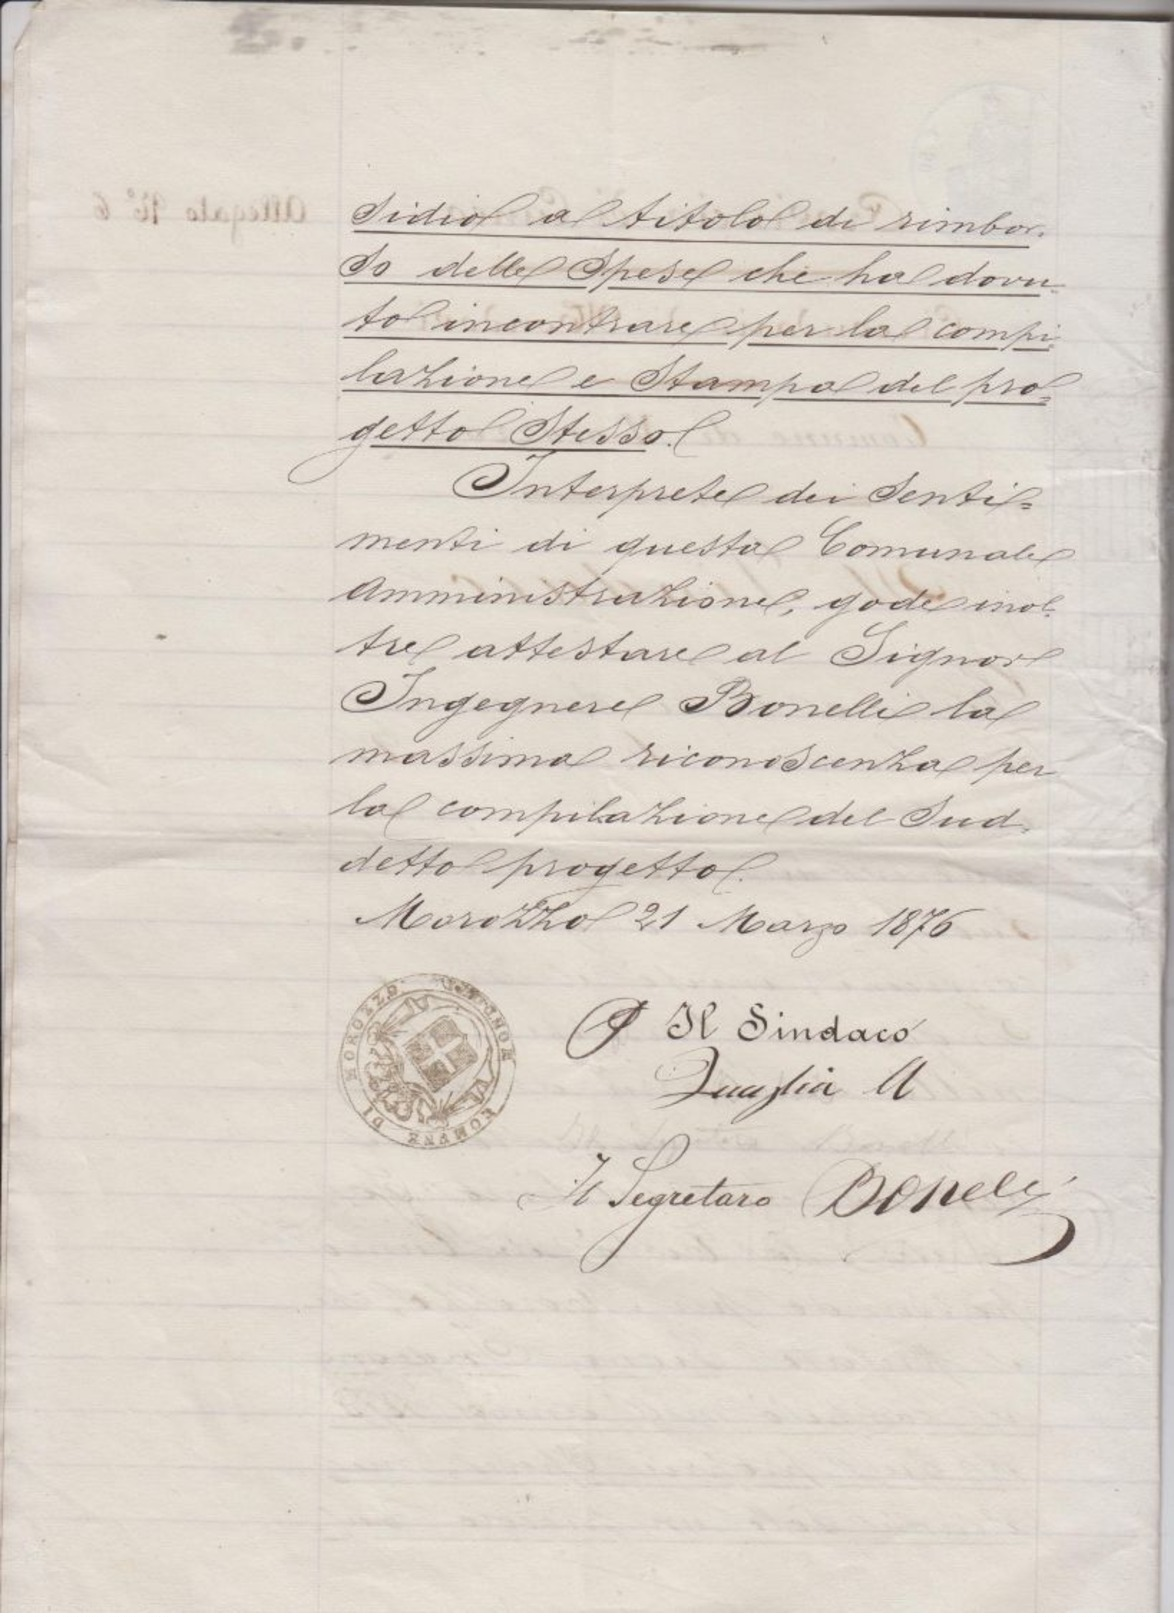 sidio a titolo di rimbor-
so delle Spese che ha dovu-
to incontrare per la compi-
lazione e Stampa del pro-
getto Stesso.
Interprete dei Senti-
menti di questa Comunale
Amministrazione, gode inol-
tre attestare al Signor
Ingegnere Bonelli la
massima riconoscenza per
la compilazione del Sud-
detto progetto.
Morozzo 21 Marzo 1876
P Il Sindaco
Quaglia A
Il Segretaro Bonelli
COMUNE DI MOROZZO
MONDOVI
Allegato N.° 6